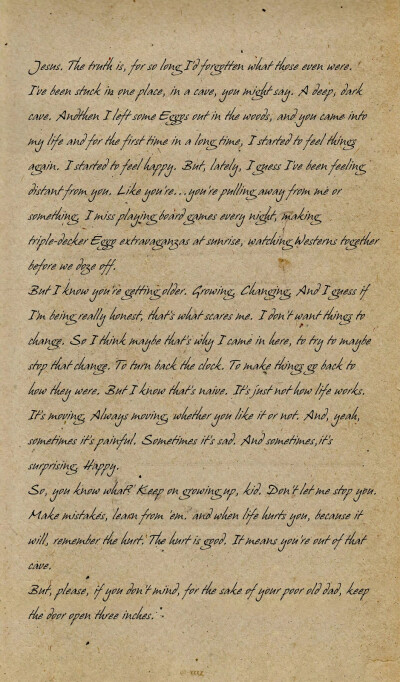 Jesus. The truth is, for so long I'd forgotten what those even were.
I've been stuck in one place, in a cave, you might say. A deep, dark
cave. Andthen I left some Eggos out in the woods, and you came into
my life and for the first time in a long time, I started to feel things
again. I started to feel happy. But, lately, I guess I've been feeling
distant from you. Like you're...you're pulling away from me or
something, I miss playing board games every night, making
triple-decker Eggo extravaganzas at sunrise, watching Westerns together
before we doze off.
But I know you're getting older. Growing, Changing, And I guess if
I'm being really honest, that's what scares me. I don't want things to
change. So I think maybe that's why I came in here, to try to maybe
stop that change. To turn back the clock. To make things go back to
how they were. But I know that's naive. It's just not how life works.
It's moving, Always moving, whether you like it or not. And, yeah,
sometimes it's painful. Sometimes it's sad. And sometimes,it's
surprising, Happy.
So, you know what? Keep on growing up, kid. Don't let me stop you.
Make mistakes, learn from 'em. and when life hurts you, because it
will, remember the hurt. The hurt is good. It means you're out of that
cave.
But, please, if you don't mind, for the sake of your poor old dad, keep
the door open three inches.